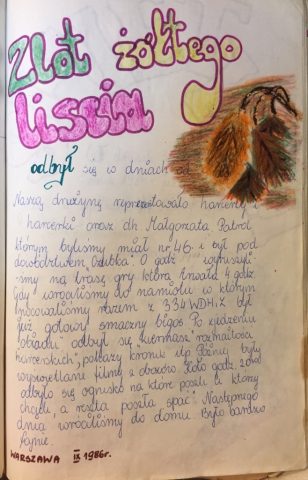 Zlot żółtego
liścia
odbył się w dniach od
Naszą drużynę reprezentowało harcerzy i
harcerki oraz dh Małgorzata Patrol
którym byliśmy miał nr 46 i był pod
dowództwem "Ozubka". O godz wyruszyli
śmy na trasę gry która trwała 4 godz.
Gdy wróciliśmy do namiotu w którym
nocowaliśmy razem z 334 WDHiZ był
już gotowy smaczny bigos. Po zjedzeniu
"obiadu" odbył się "kiermasz rozmaitości
harcerskich", pokazy kronik itp. Później były
wyświetlane filmy z dwoch. Koło godz.
odbyło się ognisko na które poszli ci którzy
chcieli, a reszta poszła spać. Następnego
dnia wróciliśmy do domu. Było bardzo
fajnie.
WARSZAWA IX 1986r.